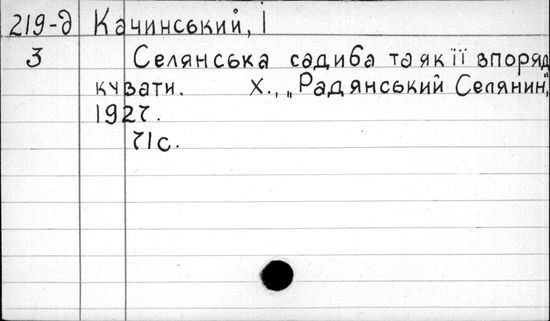 219-д Качинський, І
3 Селянська садиба та як її впоряд
кувати. Х., „Радянський Селянин",
1927.
71с.